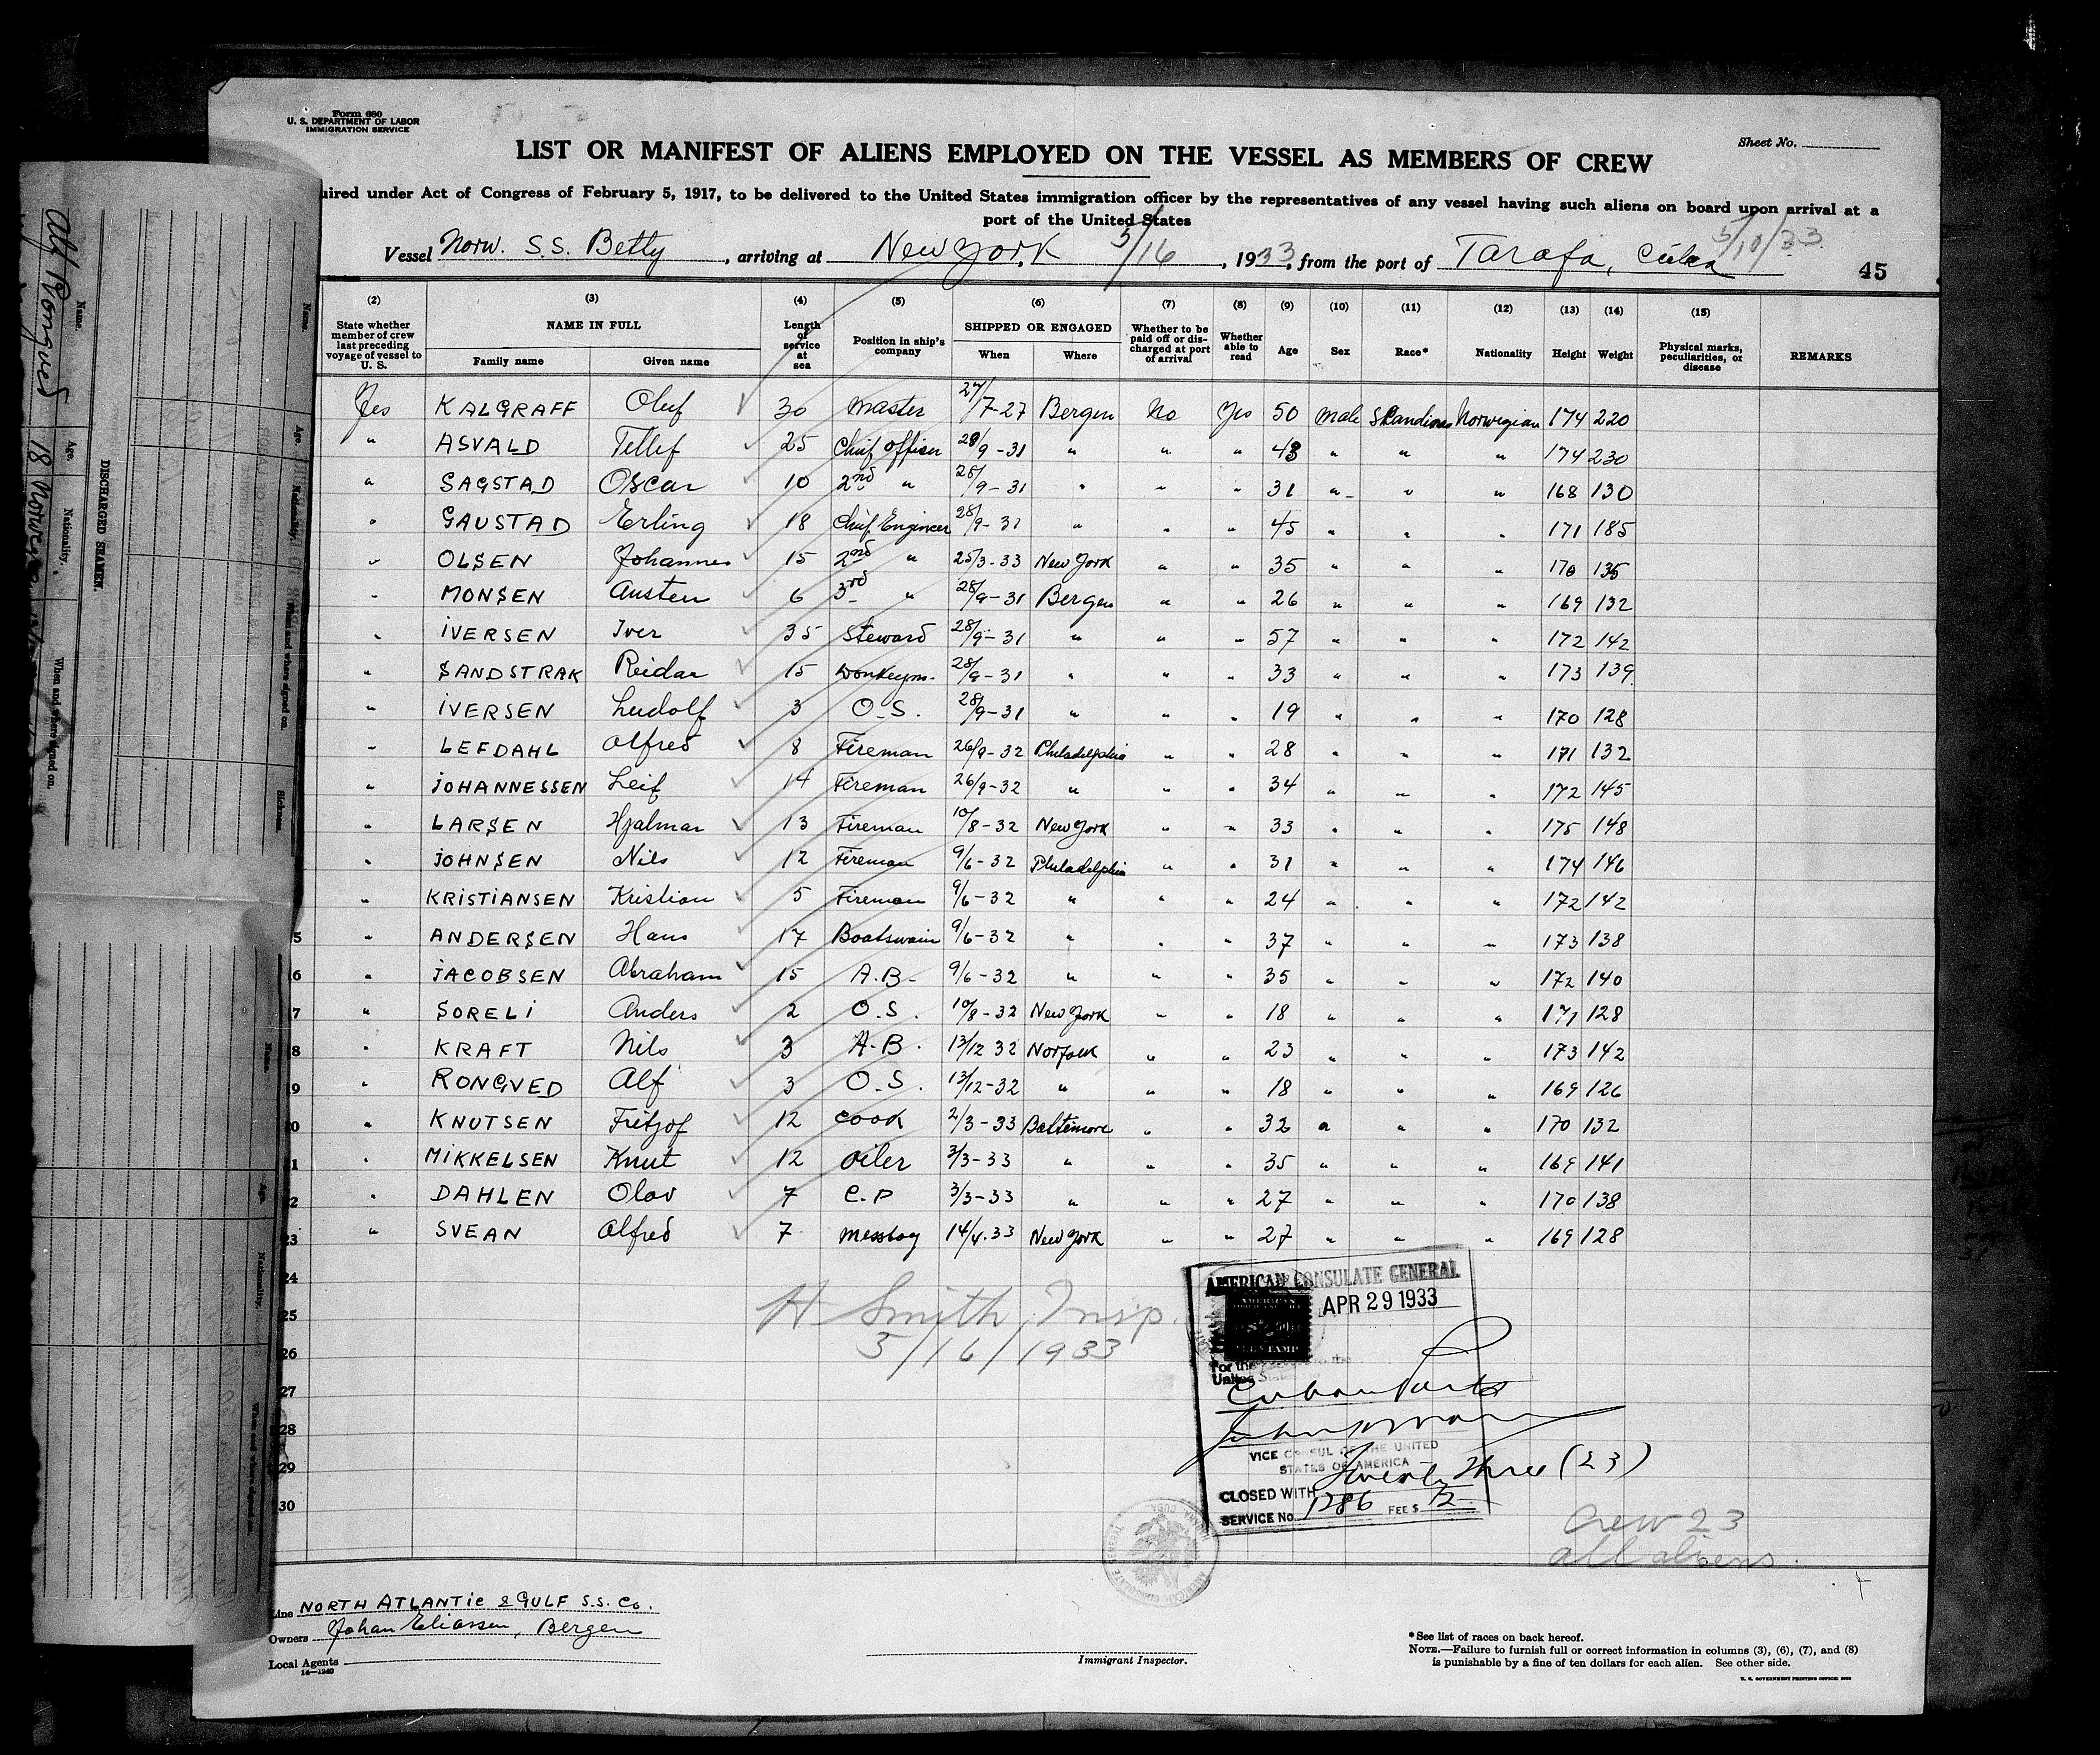 Form 680
U. S. DEPARTMENT OF LABOR
IMMIGRATION SERVICE
Sheet No.
LIST OR MANIFEST OF ALIENS EMPLOYED ON THE VESSEL AS MEMBERS OF CREW
uired under Act of Congress of February 5, 1917, to be delivered to the United States immigration officer by the representatives of any vessel having such aliens on board upon arrival at a
port of the United States
Vessel Norw. S.S. Betty, arriving at New York 5/16, 1933, from the port of Tarafa, Cuba 5/10/33
45
(2) (3) (4) (5) (6) (7) (8) (9) (10) (11) (12) (13) (14) (15)
State whether member of crew last preceding voyage of vessel to U. S.
NAME IN FULL
Family name Given name
Length of service at sea
Position in ship's company
SHIPPED OR ENGAGED
When Where
Whether to be paid off or discharged at port of arrival
Whether able to read
Age Sex Race* Nationality Height Weight
Physical marks, peculiarities, or disease
REMARKS
Yes KALGRAFF Oluf 30 Master 27/7-27 Bergen No Yes 50 male Norwegian 174 220
" ASVALD Tellef 25 Chief Officer 28/9-31 " " " 43 " " " 174 230
" SAGSTAD Oscar 10 2nd " 28/9-31 " " " 31 " " " 168 130
" GAUSTAD Erling 18 Chief Engineer 28/9-31 " " " 45 " " " 171 185
" OLSEN Johannes 15 2nd " 25/3-33 New York " " 35 " " " 170 135
" MONSEN Austen 6 3rd " 28/9-31 Bergen " " 26 " " " 169 132
" IVERSEN Iver 35 Steward 28/9-31 " " " 57 " " " 172 142
" SANDSTRAK Reidar 15 Donkeym. 28/9-31 " " " 33 " " " 173 139
" IVERSEN Ludolf 3 O.S. 28/9-31 " " " 19 " " " 170 128
" LEFDAHL Alfred 8 Fireman 26/9-32 Philadelphia " " 28 " " " 171 132
" JOHANNESSEN Leif 14 Fireman 26/9-32 " " " 34 " " " 172 145
" LARSEN Hjalmar 13 Fireman 10/8-32 New York " " 33 " " " 175 148
" JOHNSEN Nils 12 Fireman 9/6-32 Philadelphia " " 31 " " " 174 146
" KRISTIANSEN Kristian 5 Fireman 9/6-32 " " " 24 " " " 172 142
5 " ANDERSEN Hans 17 Boatswain 9/6-32 " " " 37 " " " 173 138
6 " JACOBSEN Abraham 15 A.B. 9/6-32 " " " 35 " " " 172 140
7 " SORELI Anders 2 O.S. 10/8-32 New York " " 18 " " " 171 128
8 " KRAFT Nils 3 A.B. 13/12 32 Norfolk " " 23 " " " 173 142
9 " RONGVED Alf 3 O.S. 13/12-32 " " " 18 " " " 169 126
0 " KNUTSEN Fritjof 12 Cook 2/3-33 Baltimore " " 32 " " " 170 132
1 " MIKKELSEN Knut 12 Oiler 3/3-33 " " " 35 " " " 169 141
2 " DAHLEN Olav 7 C.P 3/3-33 " " " 27 " " " 170 138
23 " SVEAN Alfred 7 Messboy 14/4.33 New York " " 27 " " " 169 128
24
25
26
27
28
29
30
H Smith, Insp.
5/16/1933
AMERICAN CONSULATE GENERAL
APR 29 1933
For the
United States
Cuban Ports
VICE CONSUL OF THE UNITED
STATES OF AMERICA
Twenty Three (23)
CLOSED WITH
SERVICE No. 1286 FEE $ 12
Crew 23
all aliens.
Line NORTH ATLANTIC & GULF S.S. Co.
Owners Johan Eliassen, Bergen
Local Agents
14—1240
Immigrant Inspector.
*See list of races on back hereof.
NOTE.—Failure to furnish full or correct information in columns (3), (6), (7), and (8)
is punishable by a fine of ten dollars for each alien. See other side.
U. S. GOVERNMENT PRINTING OFFICE: 1930
DISCHARGED SEAMEN.
Name. Age. Nationality. When and where signed on.
Alf Rongved 18